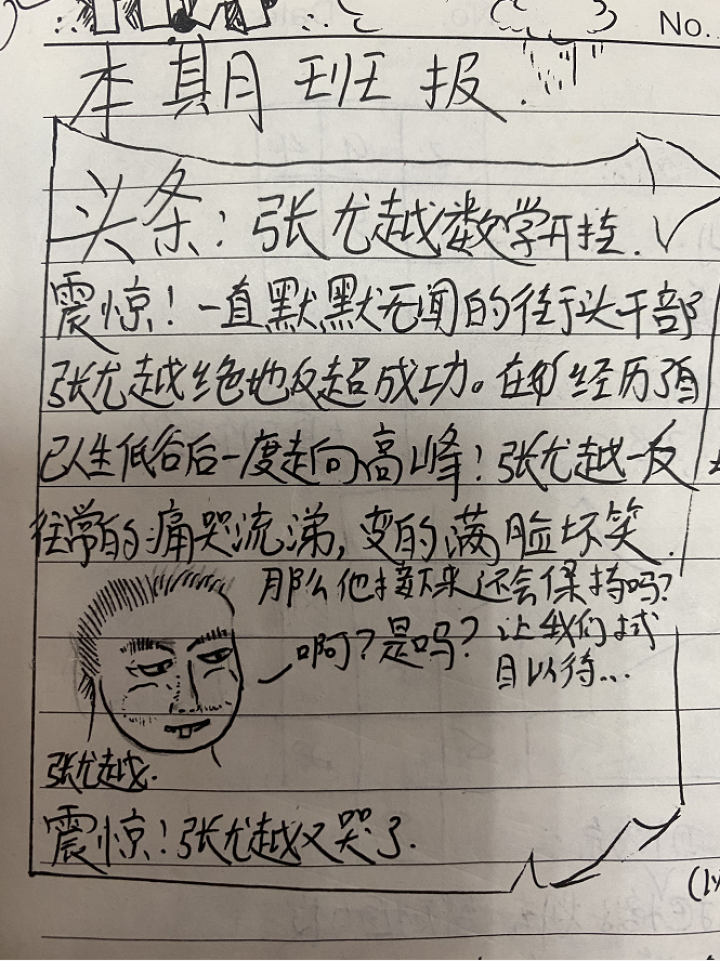 No.
本期班报.
头条:张尤越数学开挂.
震惊!一直默默无闻的往于头干部
张尤越绝地反超成功。在他经历了自
己人生低谷后一度走向高峰!张尤越一反
往常的痛哭流涕,变的满脸坏笑.
那么他接下来还会保持吗?
啊?是吗?让我们拭
目以待...
张尤越.
震惊!张尤越又哭了.